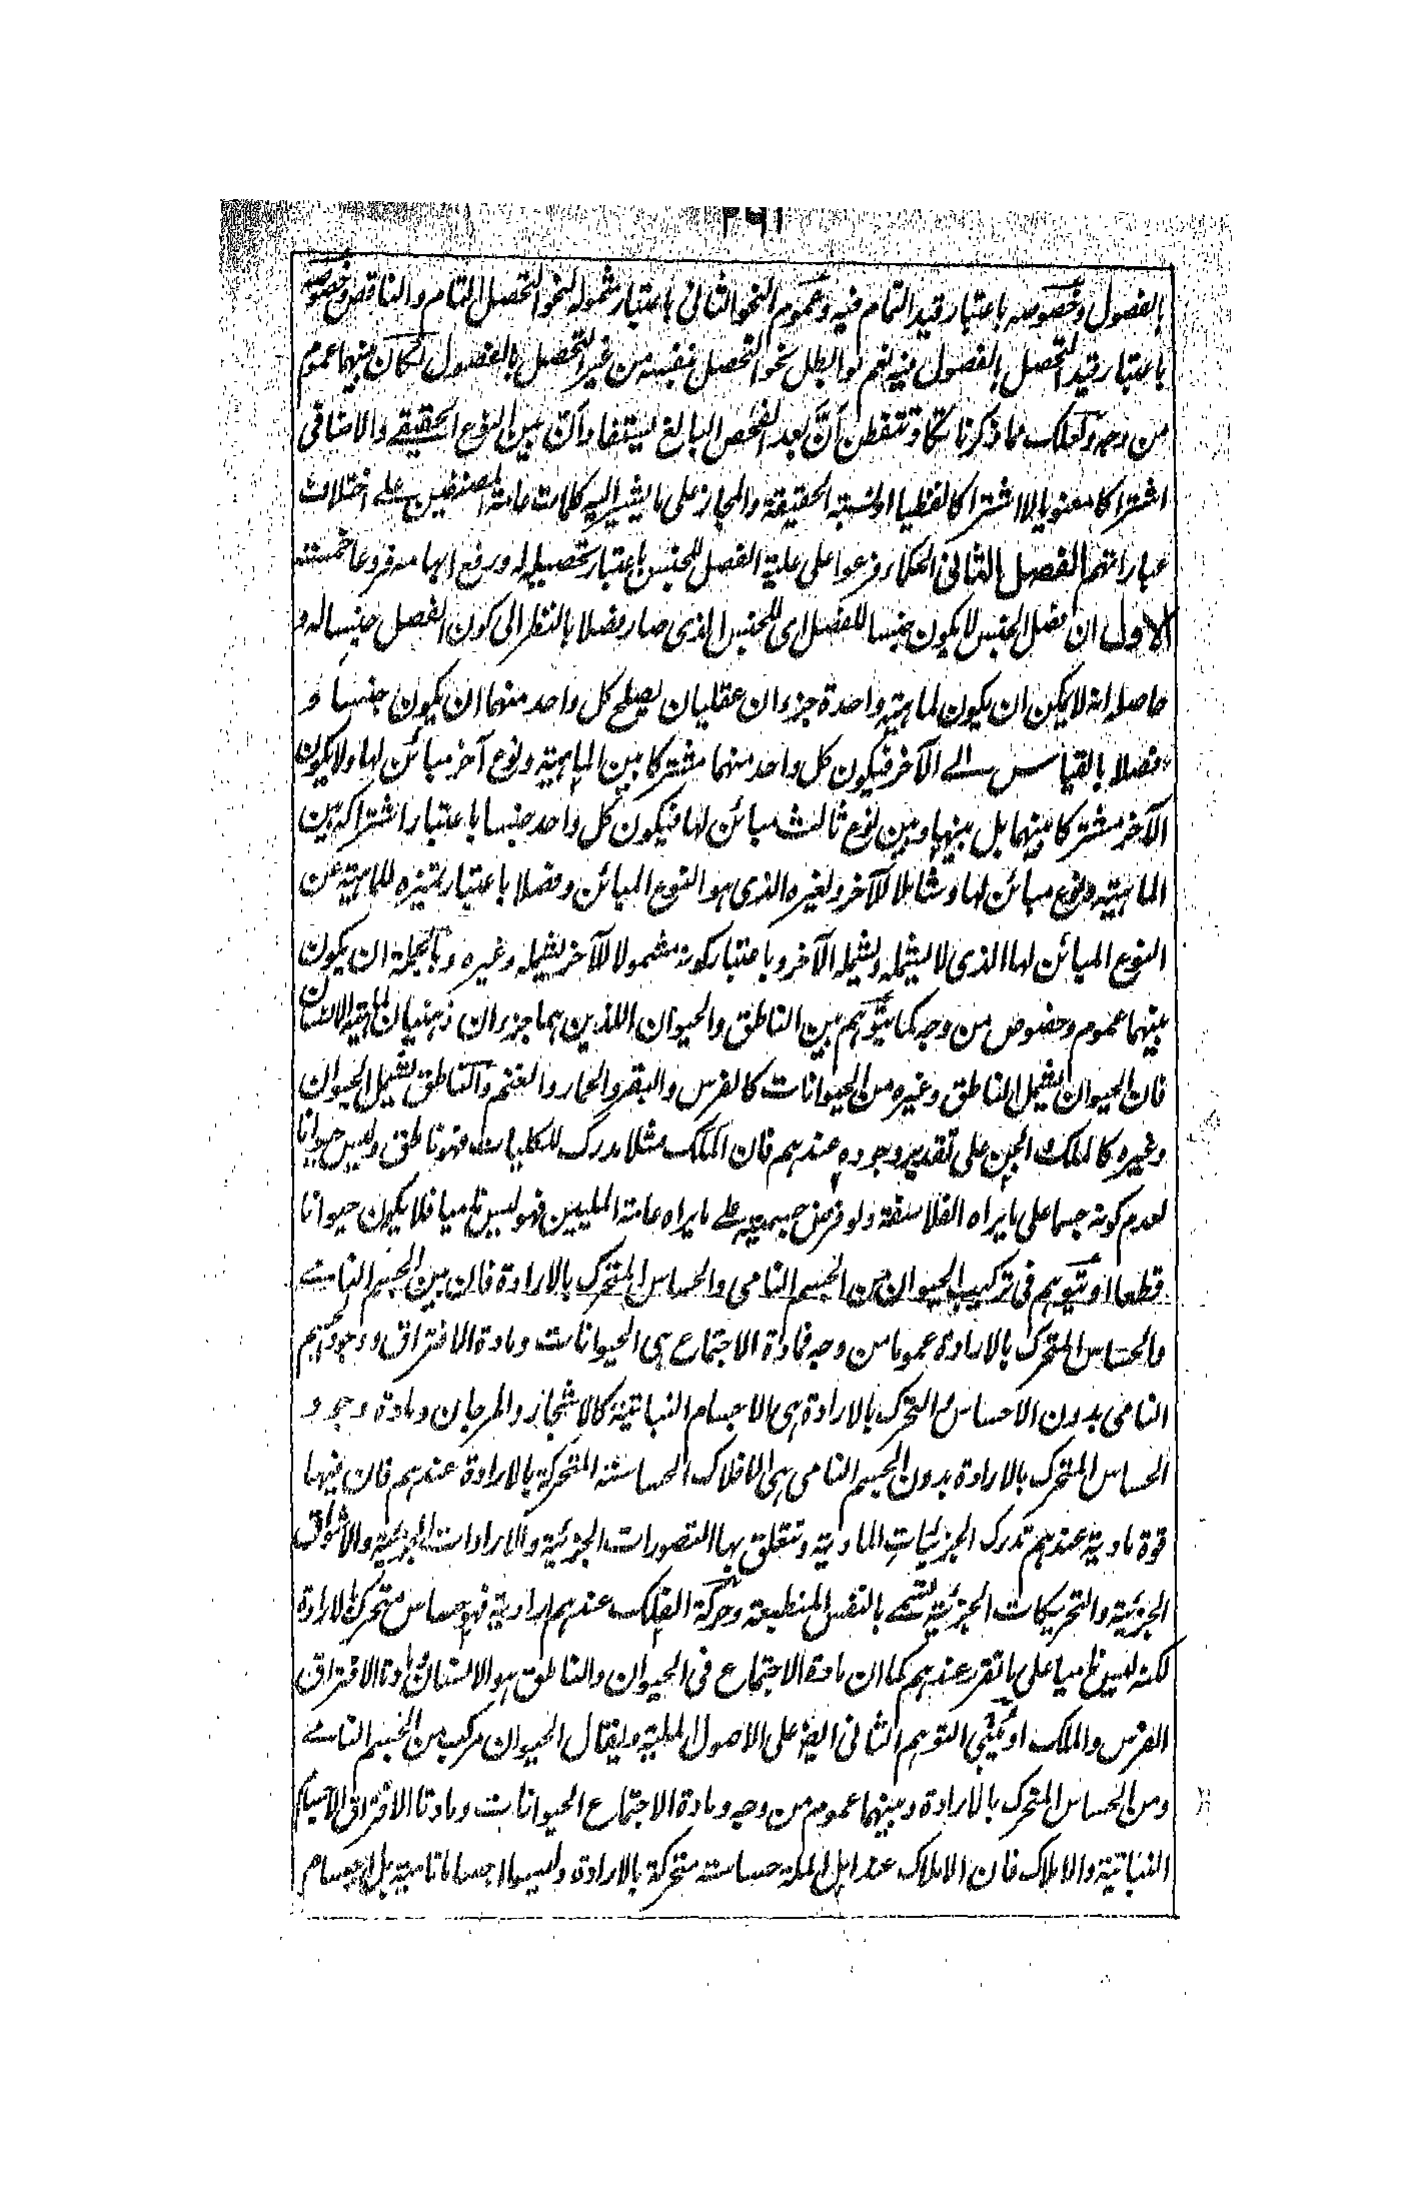 ٢٩١
بالفصول وخصوصه باعتبار قيد التمام فيه وعموم النحو الثاني باعتبار شموله لنحو التحصل التام والناقص وخصوصه
باعتبار قيد التحصل بالفصول فيه نعم لو ابطل نحو التحصل بنفسه من غير التحصل بالفصول لكان بينهما عموم
من وجه ولعلك مما ذكرنا تتفطن أنّ بعد الفحص البالغ يستفاد ان بين النوع الحقيقے والاضافى
اشتراكا معنويا لا اشتراكا لفظيا او نسبة الحقيقة والمجاز على ما يشير اليه كلمات عامة المصنفين علے اختلاف
عباراتهم الفصل الثاني الحكماء فرعوا على علية الفصل للجنس باعتبار تحصيله له ورفع ابهامه فروعا خمسته
الاول ان فصل الجنس لا يكون جنسا للفصل اى للجنس الذى صار فصلا بالنظر الى كون الفصل جنسا له و
حاصله انه لا يمكن ان يكون لماهية واحدة جزءان عقليان يصلح كل واحد منهما ان يكون جنسا و
فصلا بالقياس الے الآخر فيكون كل واحد منهما مشتركا بين الماهية ونوع آخر مبائن لها ولا يكون
الآخر مشتركا بينهما بل بينها وبين نوع ثالث مبائن لها فيكون كل واحد جنسا باعتبار اشتراكه بين
الماهية ونوع مبائن لها وشاملا للآخر ولغيره الذى هو النوع المبائن وفصلا باعتبار تميزه للماهية عن
النوع المبائن لها الذى لا يشمله ويشمله الآخر وباعتبار كونه مشمولا للآخر يشمله وغيره وبالجملة ان يكون
بينهما عموم وخصوص من وجه كما يتوهم بين الناطق والحيوان اللذين هما جزءان ذهنيان لماهية الانسان
فان الحيوان يشمل الناطق وغيره من الحيوانات كالفرس والبقر والحمار والغنم والناطق يشمل الحيوان
وغيره كالملك والجن على تقدير وجوده عندهم فان الملك مثلا مدرك للكليات فهو ناطق وليس حيوانا
لعدم كونه جسما على ما يراه الفلاسفة ولو فرض جسميته علے ما يراه عامة المليين فهو ليس ناميا فلا يكون حيوانا
قطعا او يتوهم فى تركيب الحيوان من الجسم النامى والحساس المتحرك بالارادة فان بين الجسم النامے
والحساس المتحرك بالارادة عموما من وجه فمادة الاجتماع هى الحيوانات ومادة الافتراق ووجود الجسم
النامى بدون الاحساس والتحرك بالارادة هى الاجسام النباتية كالاشجار والمرجان ومادة وجود
الحساس المتحرك بالارادة بدون الجسم النامى هى الافلاك الحساسة المتحركة بالارادة عندهم فان فيها
قوة مادية عندهم تدرك الجزئيات المادية وتتعلق بها التصورات الجزئية والارادات الجزئية والاشواق
الجزئية والتحريكات الجزئية تسمے بالنفس المنطبعة وحركة الفلك عندهم ارادية فهو حساس متحرك بالارادة
لكنه ليس ناميا على ما تقرر عندهم كما ان مادة الاجتماع فى الحيوان والناطق هو الانسان ومادة الافتراق
الفرس والملك او يكفي التوهم الثاني ايضا على الاصول الملية ويقال الحيوان مركب من الجسم النامے
ومن الحساس المتحرك بالارادة وبينهما عموم من وجه ومادة الاجتماع الحيوانات ومادتا الافتراق الاجسام
النباتية والاملاك فان الاملاك عند اهل الملة حساسة متحركة بالارادة وليسوا اجساما نامية بل اجسام